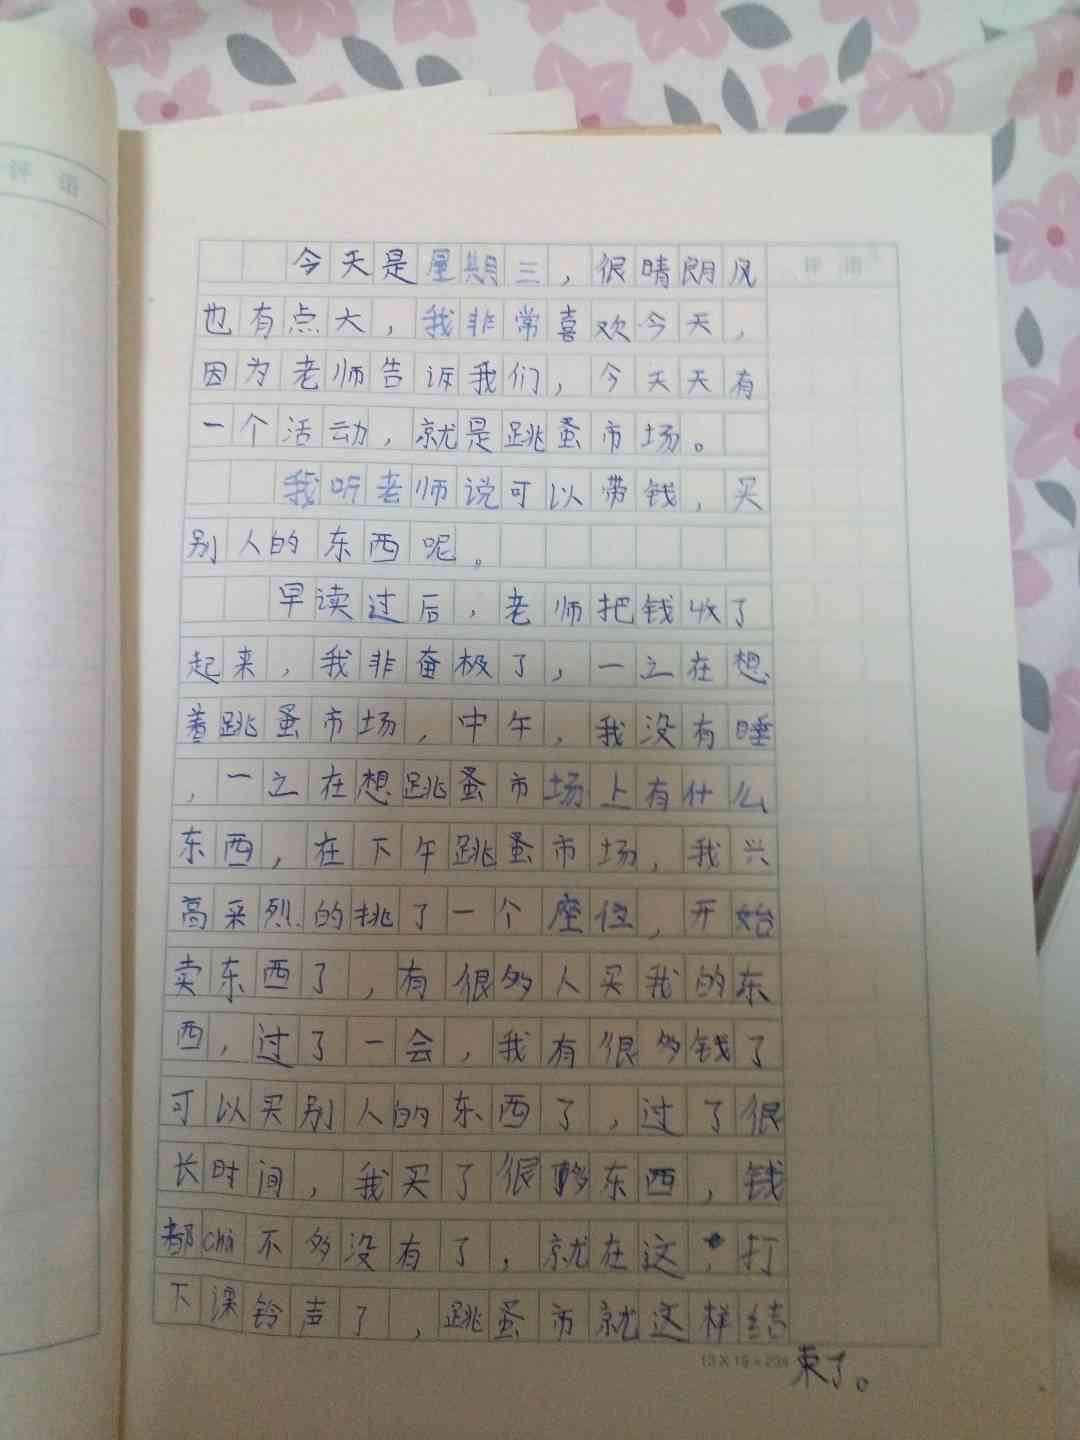 今天是星期三，很晴朗风
也有点大，我非常喜欢今天，
因为老师告诉我们，今天天有
一个活动，就是跳蚤市场。
我听老师说可以带钱，买
别人的东西呢。
早读过后，老师把钱收了
起来，我非奋极了，一之在想
着跳蚤市场，中午，我没有睡
，一之在想跳蚤市场上有什么
东西，在下午跳蚤市场，我兴
高采烈的挑了一个座位，开始
卖东西了，有很多人买我的东
西，过了一会，我有很多钱了
可以买别人的东西了，过了很
长时间，我买了很多东西，钱
都chà不多没有了，就在这，打
下课铃声了，跳蚤市就这样结
束了。
评语